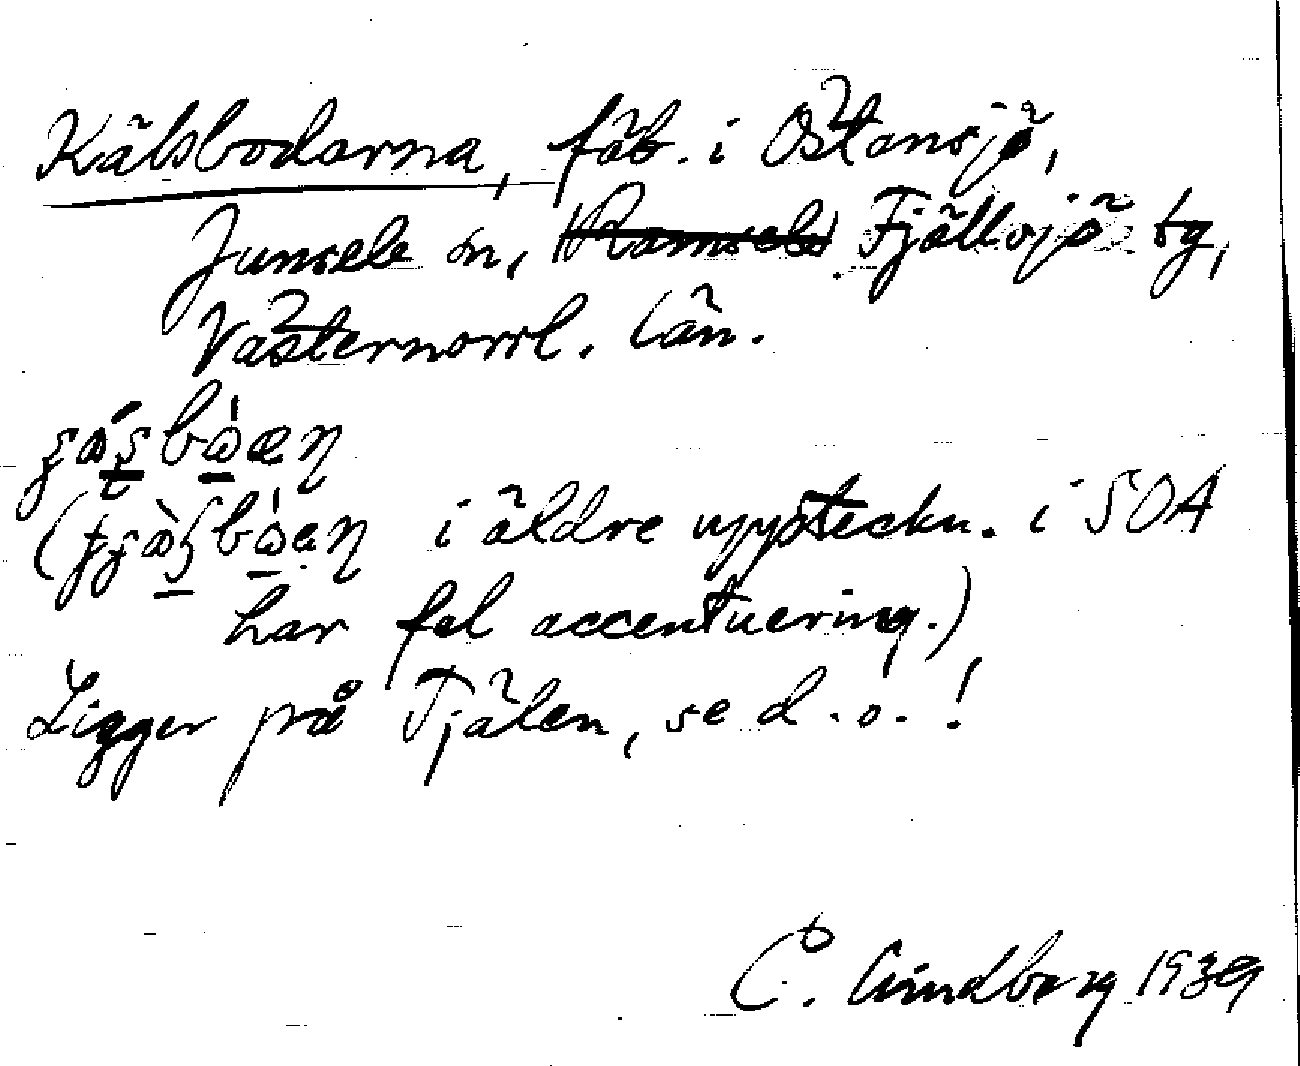 Kälsbodarna, fäb. i Östansjö,
Junsele sn, Ramsele Fjällsjö tg,
Västernorrl. län.
i äldre uppteckn. i SOA
har fel accentuering.)
Ligger på Tjälen, se d.o.!
C. Lindberg 1939